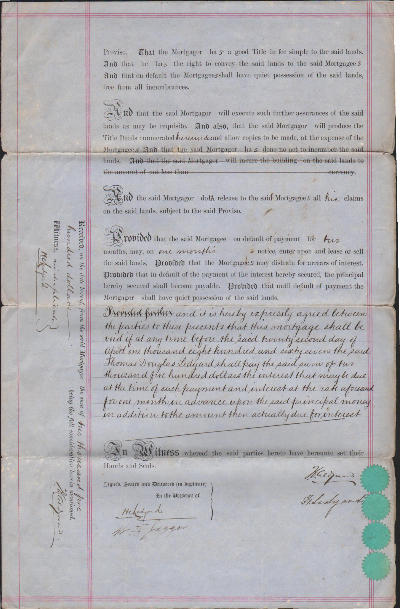 Proviso. That the Mortgagor has a good Title in fee simple to the said lands.
And that he has the right to convey the said lands to the said Mortgagees
And that on default the Mortgagees shall have quiet possession of the said lands,
free from all incumbrances.
And that the said Mortgagor will execute such further assurances of the said
lands as may be requisite. And also, that the said Mortgagor will produce the
Title Deeds enumerated herein and allow copies to be made, at the expense of the
Mortgagees And that the said Mortgagor has done no act to incumber the said
lands. And that the said Mortgagor will insure the building on the said lands to
the amount of not less than currency.
And the said Mortgagor doth release to the said Mortgagees all his claims
on the said lands, subject to the said Proviso.
Provided that the said Mortgagees on default of payment for two
months, may, on one months notice, enter upon and lease or sell
the said lands. Provided that the Mortgagees may distrain for arrears of interest.
Provided that in default of the payment of the interest hereby secured, the principal
hereby secured shall become payable. Provided that until default of payment the
Mortgagor shall have quiet possession of the said lands.
Provided further and it is hereby expressly agreed between
the parties to these presents that this mortgage shall be
void if at any time before the said twenty second day of
April one thousand eight hundred and sixty seven the said
Thomas Douglas Ledyard shall pay the said sum of two
thousand five hundred dollars the interest that may be due
at the time of such payment and interest at the rate aforesaid
for one month in advance upon the said principal money
in addition to the amount then actually due for interest
In Witness whereof the said parties hereto have hereunto set their
Hands and Seals.
Signed, Sealed and Delivered (in duplicate)
In the Presence of
Received, on the date hereof, from the said Mortgagees the sum of two thousand five
hundred dollars
being the full consideration herein mentioned.
Witness,